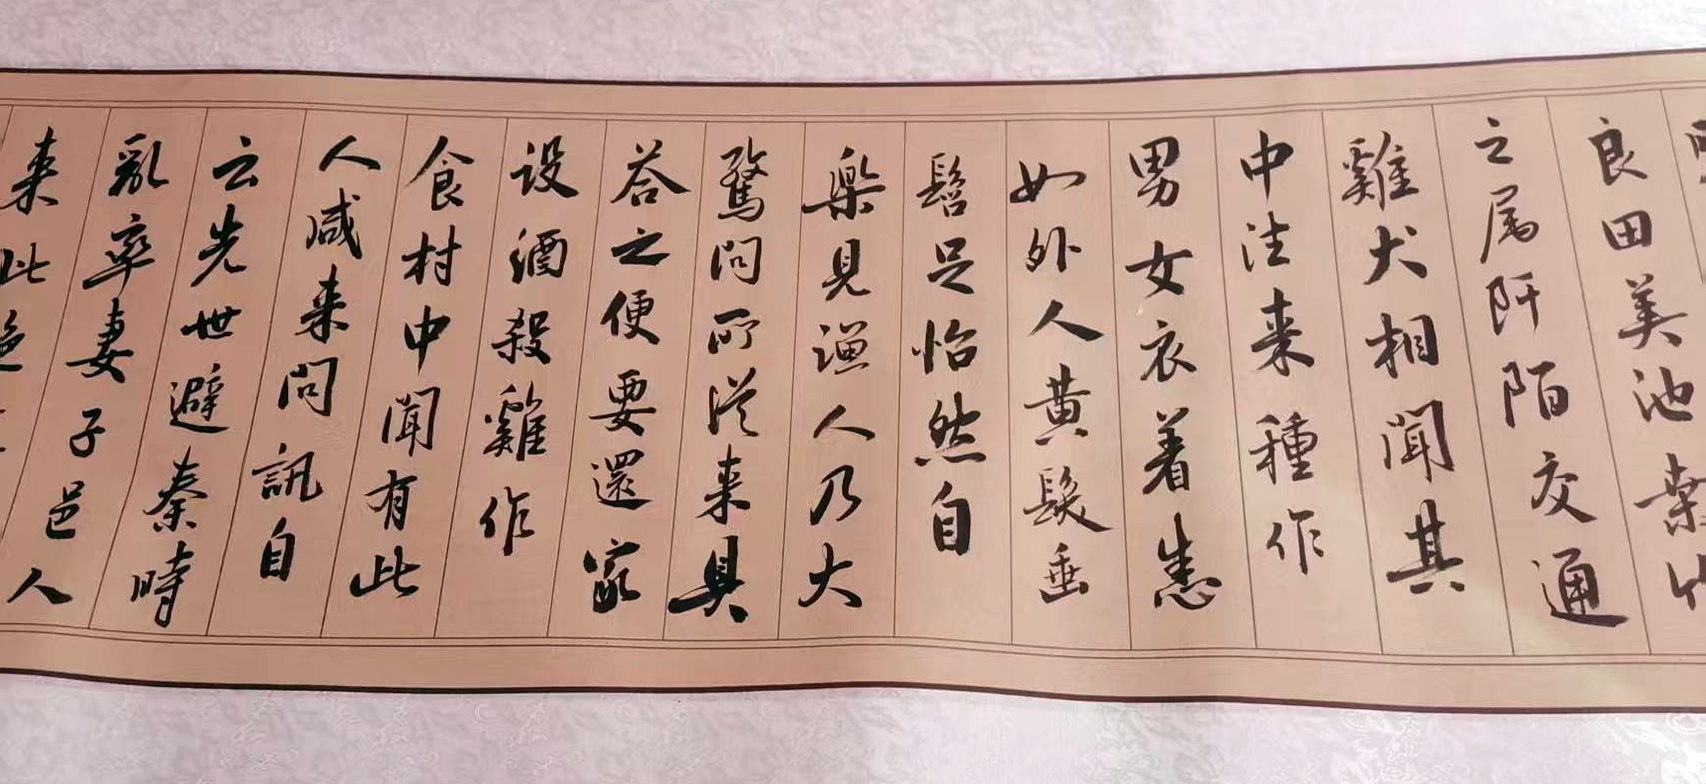 良田美池桑竹
之属阡陌交通
雞犬相聞其
中往来種作
男女衣着悉
如外人黄髮垂
髫足怡然自
樂見漁人乃大
驚問所從来具
荅之便要還家
设酒殺雞作
食村中聞有此
人咸来問訊自
云先世避秦時
亂率妻子邑人
来此絶